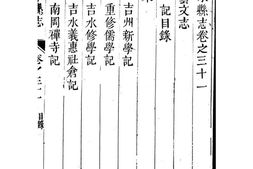 水縣志卷之三十一
藝文志
記目錄
宋
吉州新學記
重修儒學記
吉水修學記
吉水義惠社倉記
南岡禪寺記
縣志
卷之三十一
目錄